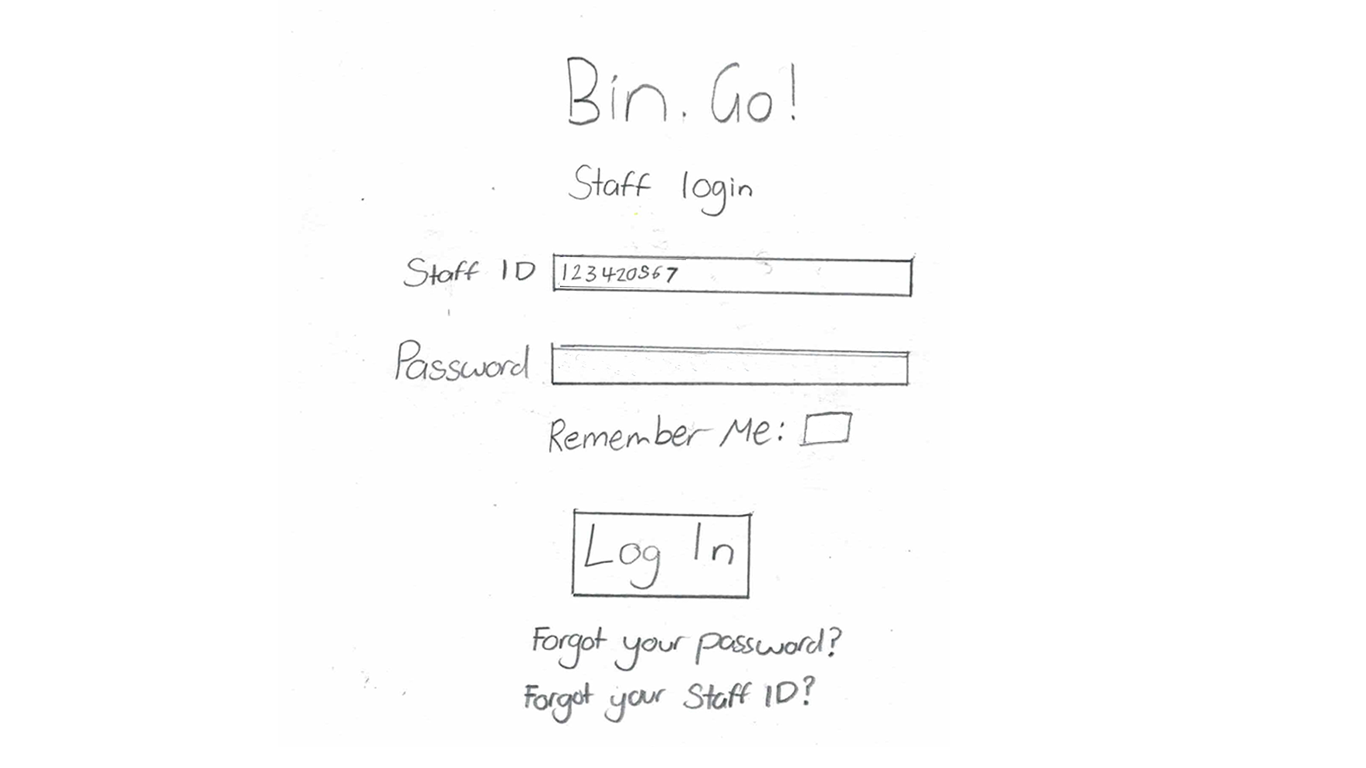 Bin. Go!
Staff login
Staff ID 123420567
Password
Remember Me:
Log In
Forgot your password?
Forgot your Staff ID?